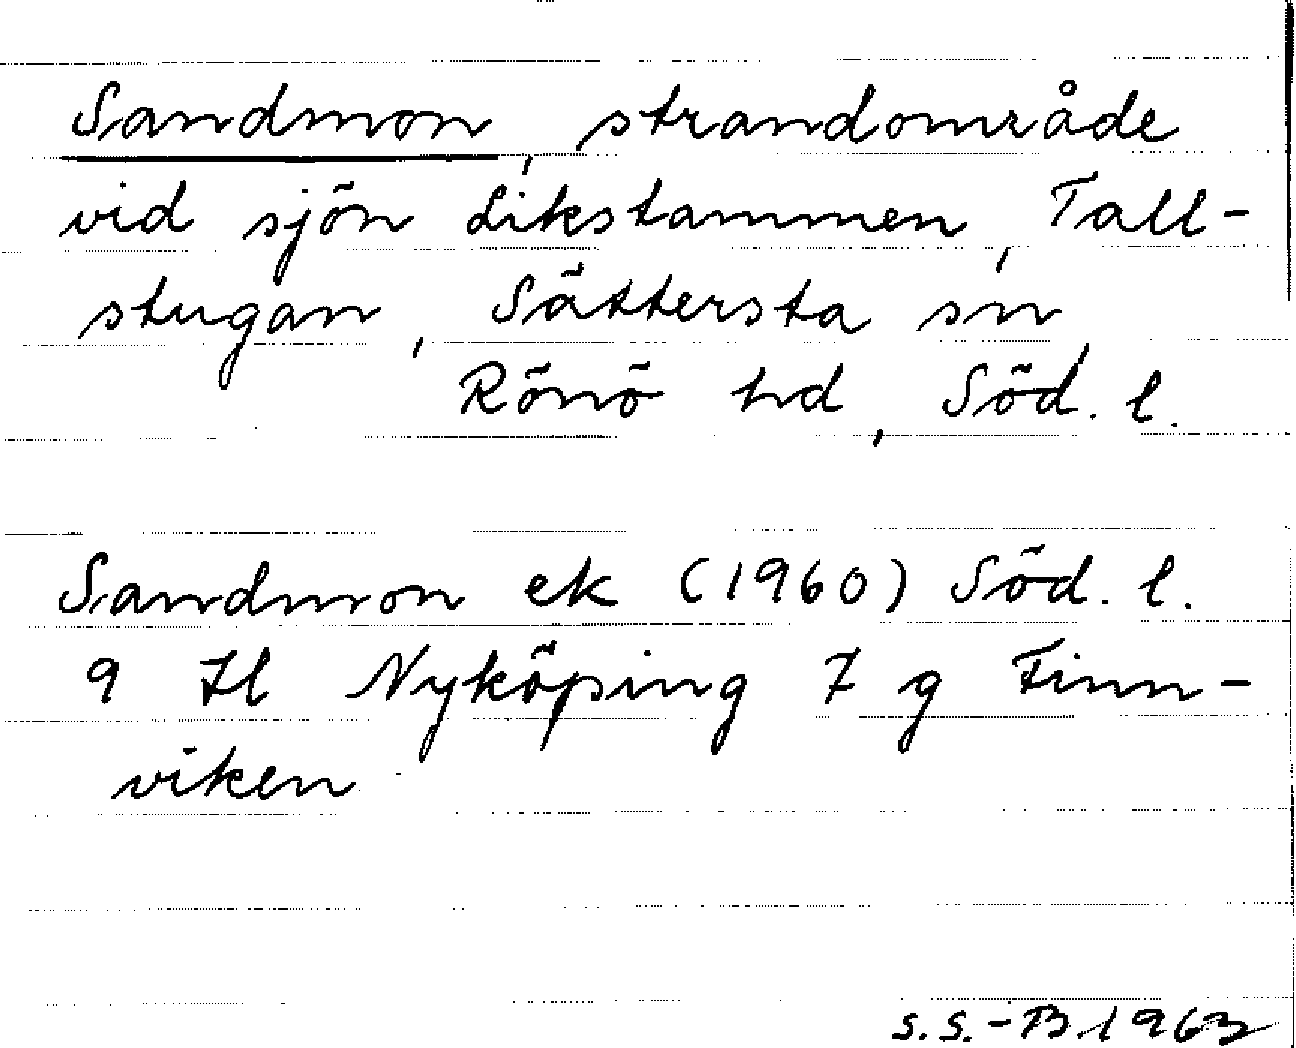 Sandmon, strandområde
vid sjön Likstammen, Tall-
stugan, Sättersta sn,
Rönö hd, Söd. l.
Sandmon ek (1960) Söd. l.
9 Hl Nyköping 7 g Finn-
viken
S.S.-B. 1963